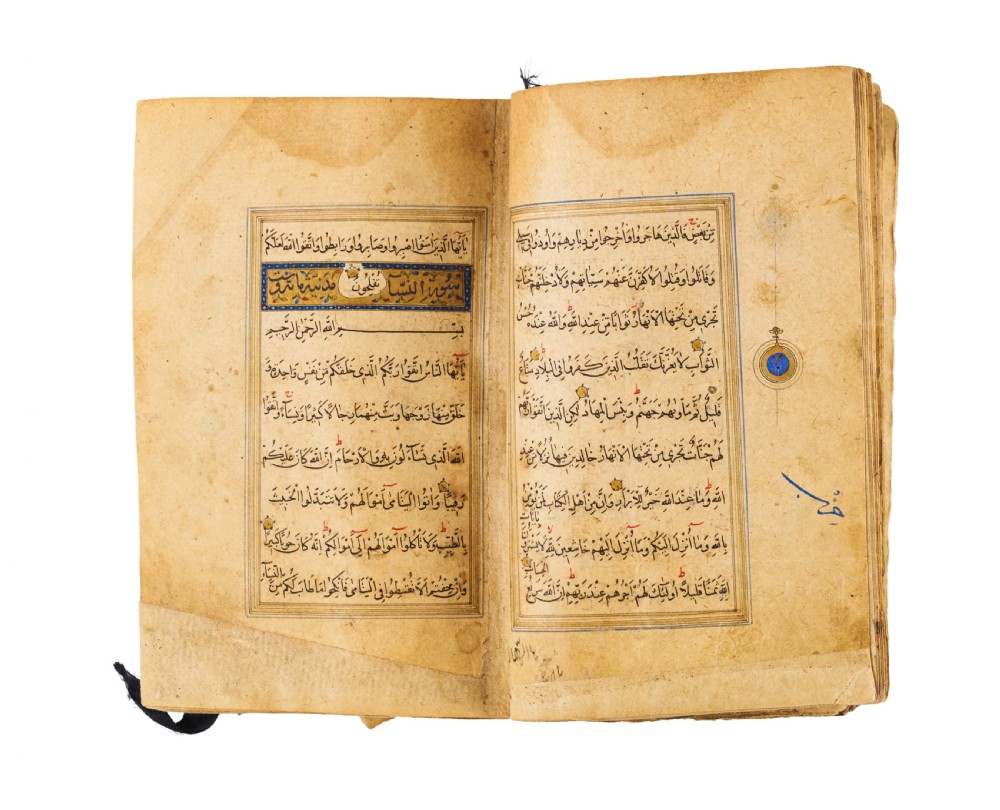 مِن بَعْضٍ فَالَّذِينَ هَاجَرُوا وَأُخْرِجُوا مِن دِيَارِهِمْ وَأُوذُوا فِي سَبِيلِي
وَقَاتَلُوا وَقُتِلُوا لَأُكَفِّرَنَّ عَنْهُمْ سَيِّئَاتِهِمْ وَلَأُدْخِلَنَّهُمْ جَنَّاتٍ
تَجْرِي مِن تَحْتِهَا الْأَنْهَارُ ثَوَابًا مِن عِندِ اللَّهِ وَاللَّهُ عِندَهُ حُسْنُ
الثَّوَابِ لَا يَغُرَّنَّكَ تَقَلُّبُ الَّذِينَ كَفَرُوا فِي الْبِلَادِ مَتَاعٌ
قَلِيلٌ ثُمَّ مَأْوٰيهُمْ جَهَنَّمُ وَبِئْسَ الْمِهَادُ لَكِنِ الَّذِينَ اتَّقَوْا رَبَّهُمْ
لَهُمْ جَنَّاتٌ تَجْرِي مِن تَحْتِهَا الْأَنْهَارُ خَالِدِينَ فِيهَا نُزُلًا مِن عِندِ
اللَّهِ وَمَا عِندَ اللَّهِ خَيْرٌ لِلْأَبْرَارِ وَإِنَّ مِنْ أَهْلِ الْكِتَابِ لَمَن يُؤْمِنُ
بِاللَّهِ وَمَا أُنزِلَ إِلَيْكُمْ وَمَا أُنزِلَ إِلَيْهِمْ خَاشِعِينَ لِلَّهِ لَا يَشْتَرُونَ بِآيَاتِ
اللَّهِ ثَمَنًا قَلِيلًا أُولَئِكَ لَهُمْ أَجْرُهُمْ عِندَ رَبِّهِمْ إِنَّ اللَّهَ سَرِيعُ الْحِسَابِ
حزب
يَا أَيُّهَا الَّذِينَ آمَنُوا اصْبِرُوا وَصَابِرُوا وَرَابِطُوا وَاتَّقُوا اللَّهَ لَعَلَّكُمْ
تُفْلِحُونَ
سورة النساء مدنية
بِسْمِ اللَّهِ الرَّحْمَنِ الرَّحِيمِ
يَا أَيُّهَا النَّاسُ اتَّقُوا رَبَّكُمُ الَّذِي خَلَقَكُم مِن نَفْسٍ وَاحِدَةٍ وَ
خَلَقَ مِنْهَا زَوْجَهَا وَبَثَّ مِنْهُمَا رِجَالًا كَثِيرًا وَنِسَاءً وَاتَّقُوا
اللَّهَ الَّذِي تَسَاءَلُونَ بِهِ وَالْأَرْحَامَ إِنَّ اللَّهَ كَانَ عَلَيْكُمْ
رَقِيبًا وَآتُوا الْيَتَامَى أَمْوَالَهُمْ وَلَا تَتَبَدَّلُوا الْخَبِيثَ
بِالطَّيِّبِ وَلَا تَأْكُلُوا أَمْوَالَهُمْ إِلَى أَمْوَالِكُمْ إِنَّهُ كَانَ حُوبًا كَبِيرًا
وَإِنْ خِفْتُمْ أَلَّا تُقْسِطُوا فِي الْيَتَامَى فَانكِحُوا مَا طَابَ لَكُم مِنَ النِّسَاءِ